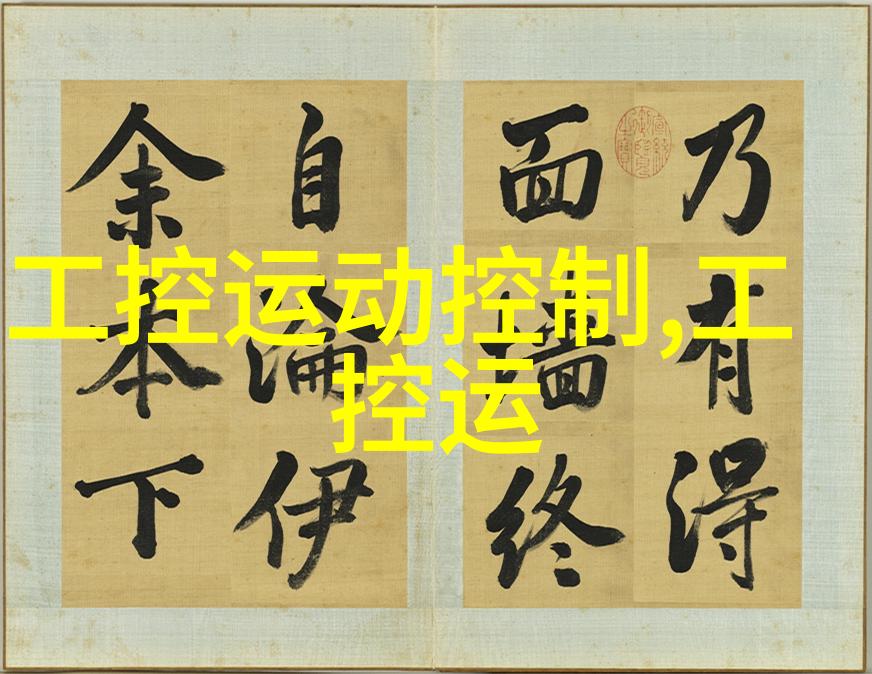 工控运动控制,工
控运
乃有得
面墻终
自淪伊
余本下